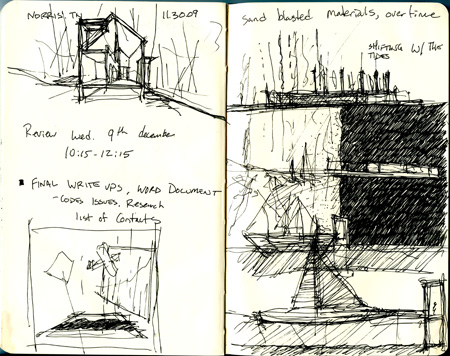 NORRIS, TN
11.30.09
Review Wed. 9th december
10:15-12:15
FINAL WRITE UPS, WORD DOCUMENT
-CODES ISSUES, Research
list of Contacts
sand blasted materials, overtime
SHIFTING W/ THE
TIDES